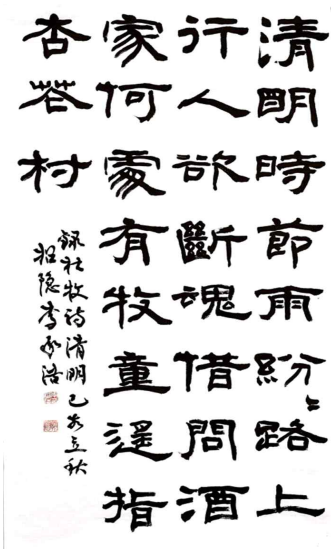 清明時節雨紛〻路上
行人欲斷魂借問酒
家何處有牧童遙指
杏花村
録杜牧诗清明己亥立秋
招隐李